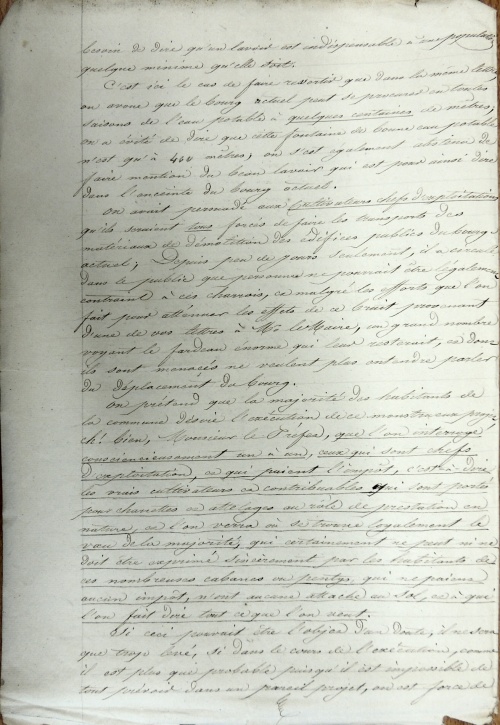 besoin de dire qu'un lavoir est indispensable à une population
quelque minime qu'elle soit.
C'est ici le cas de faire ressortir que dans la même lettre
on avoue que le bourg actuel peut se procurer en toutes
saisons de l'eau potable à quelques centaines de mètres;
on a évité de dire que cette fontaine de bonne eau potable
n'est qu'à 400 mètres; on s'est également abstenu de
faire mention du beau lavoir qui est pour ainsi dire
dans l'enceinte du bourg actuel.
On avait persuadé aux cultivateurs chefs d'exploitations
qu'ils seraient tous forcés de faire les transports des
matériaux de démolition des édifices publics du bourg
actuel; Depuis peu de jours seulement, il a circulé
dans le public que personne ne pourrait être légalement
contraint à ces charrois, et malgré les efforts que l'on
fait pour atténuer les effets de ce bruit provenant
d'une de vos lettres à Mr le Maire, un grand nombre
voyant le fardeau énorme qui leur resterait, et dont
ils sont menacés ne veulent plus entendre parler
du déplacement du bourg.
On prétend que la majorité des habitants de
la commune désire l'exécution de ce monstrueux projet
eh! bien, Monsieur le Préfet, que l'on interroge
consciencieusement un à un, ceux qui sont chefs
d'exploitation, et qui paient l'impôt, c'est-à-dire
les vrais cultivateurs et contribuables qui sont portés
pour charrettes et attelages au rôle de prestation en
nature, et l'on verra où se trouve loyalement le
vœu de la majorité, qui certainement ne peut ni ne
doit être exprimé sincèrement par les habitants de
ces nombreuses cabanes ou pentys, qui ne paient
aucun impôt, n'ont aucune attache au sol, et à qui
l'on fait dire tout ce que l'on veut.
Si ceci pouvait être l'objet d'un doute, il ne sera
que trop levé, si dans le cours de l'exécution, comme
il est plus que probable puisqu'il est impossible de
tout prévoir dans un pareil projet, on est forcé de